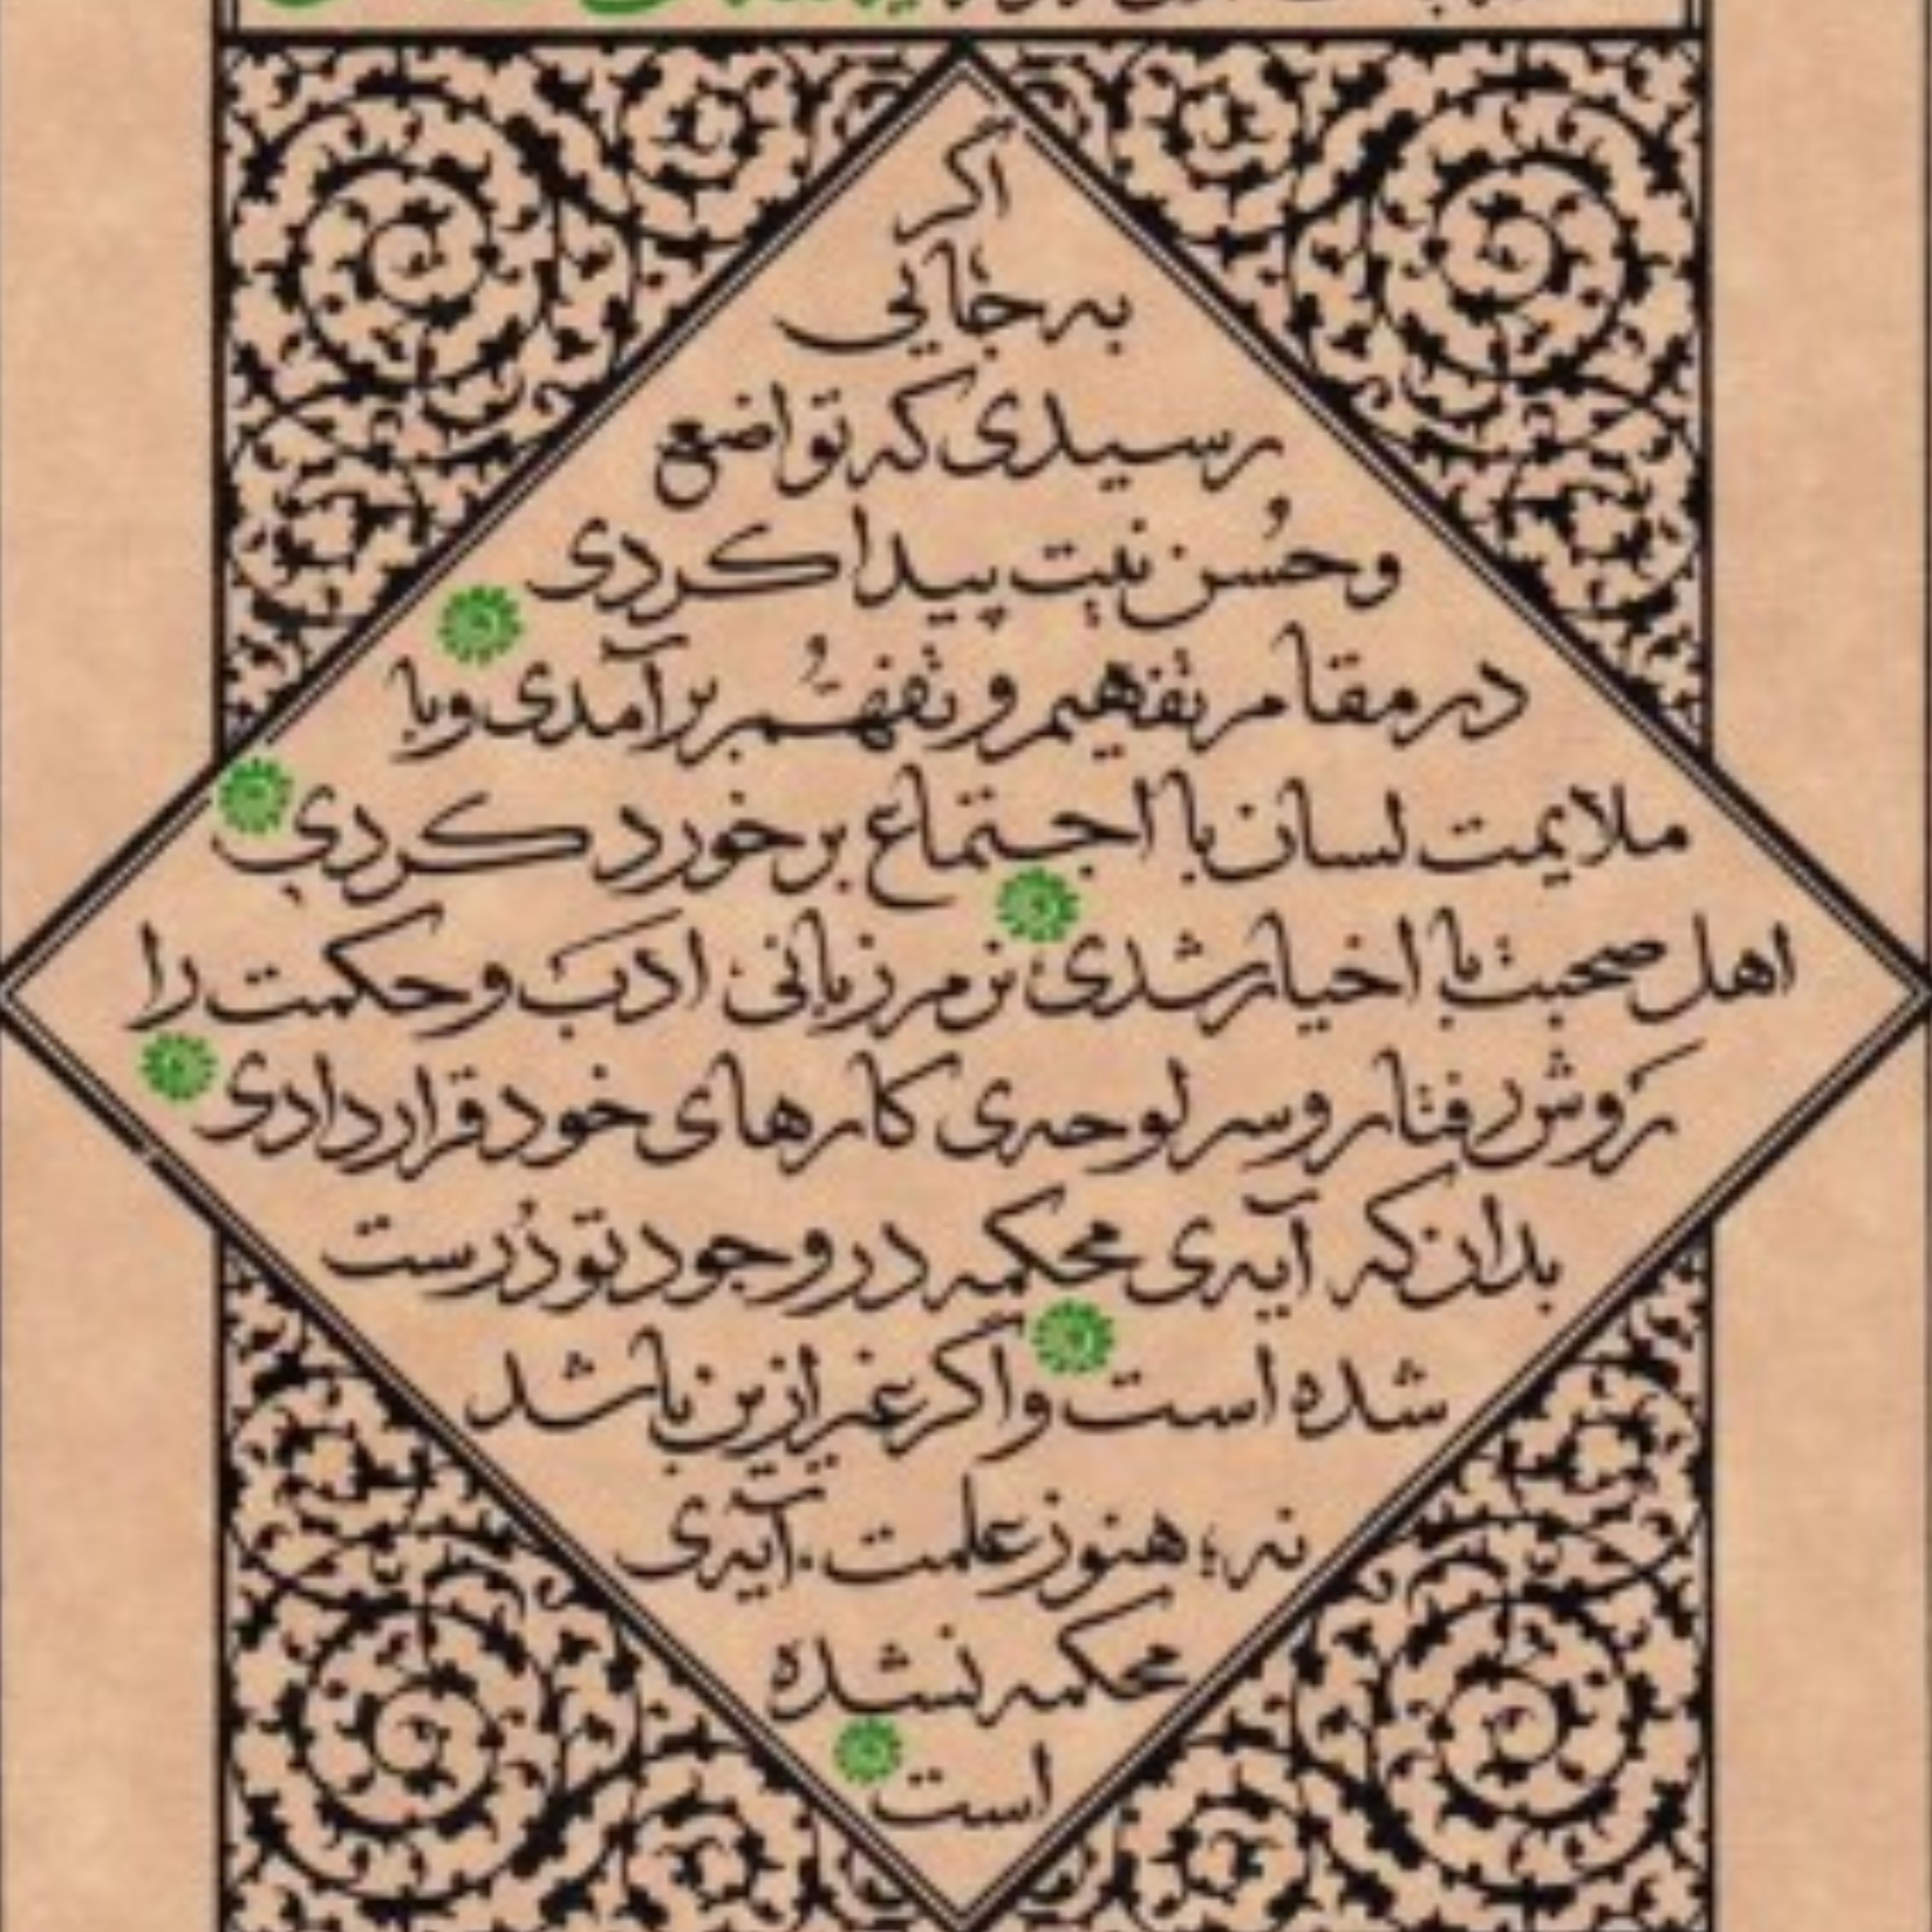 اگر
به جایی
رسیدی که تواضع
و حُسن نیت پیدا کردی
در مقام تفهیم و تفهُّم برآمدی و با
ملایمت لسان با اجتماع برخورد کردی
اهل صحبت با اخیار شدی نرم زبانی ادَب و حکمت را
رَوش رفتار و سر لوحه‌ی کارهای خود قرار دادی
بدان که آیه‌ی محکمه در وجود تو دُرست
شده است و اگر غیر ازین باشد
نه؛ هنوز علمت آیه‌ی
محکمه نشده
است